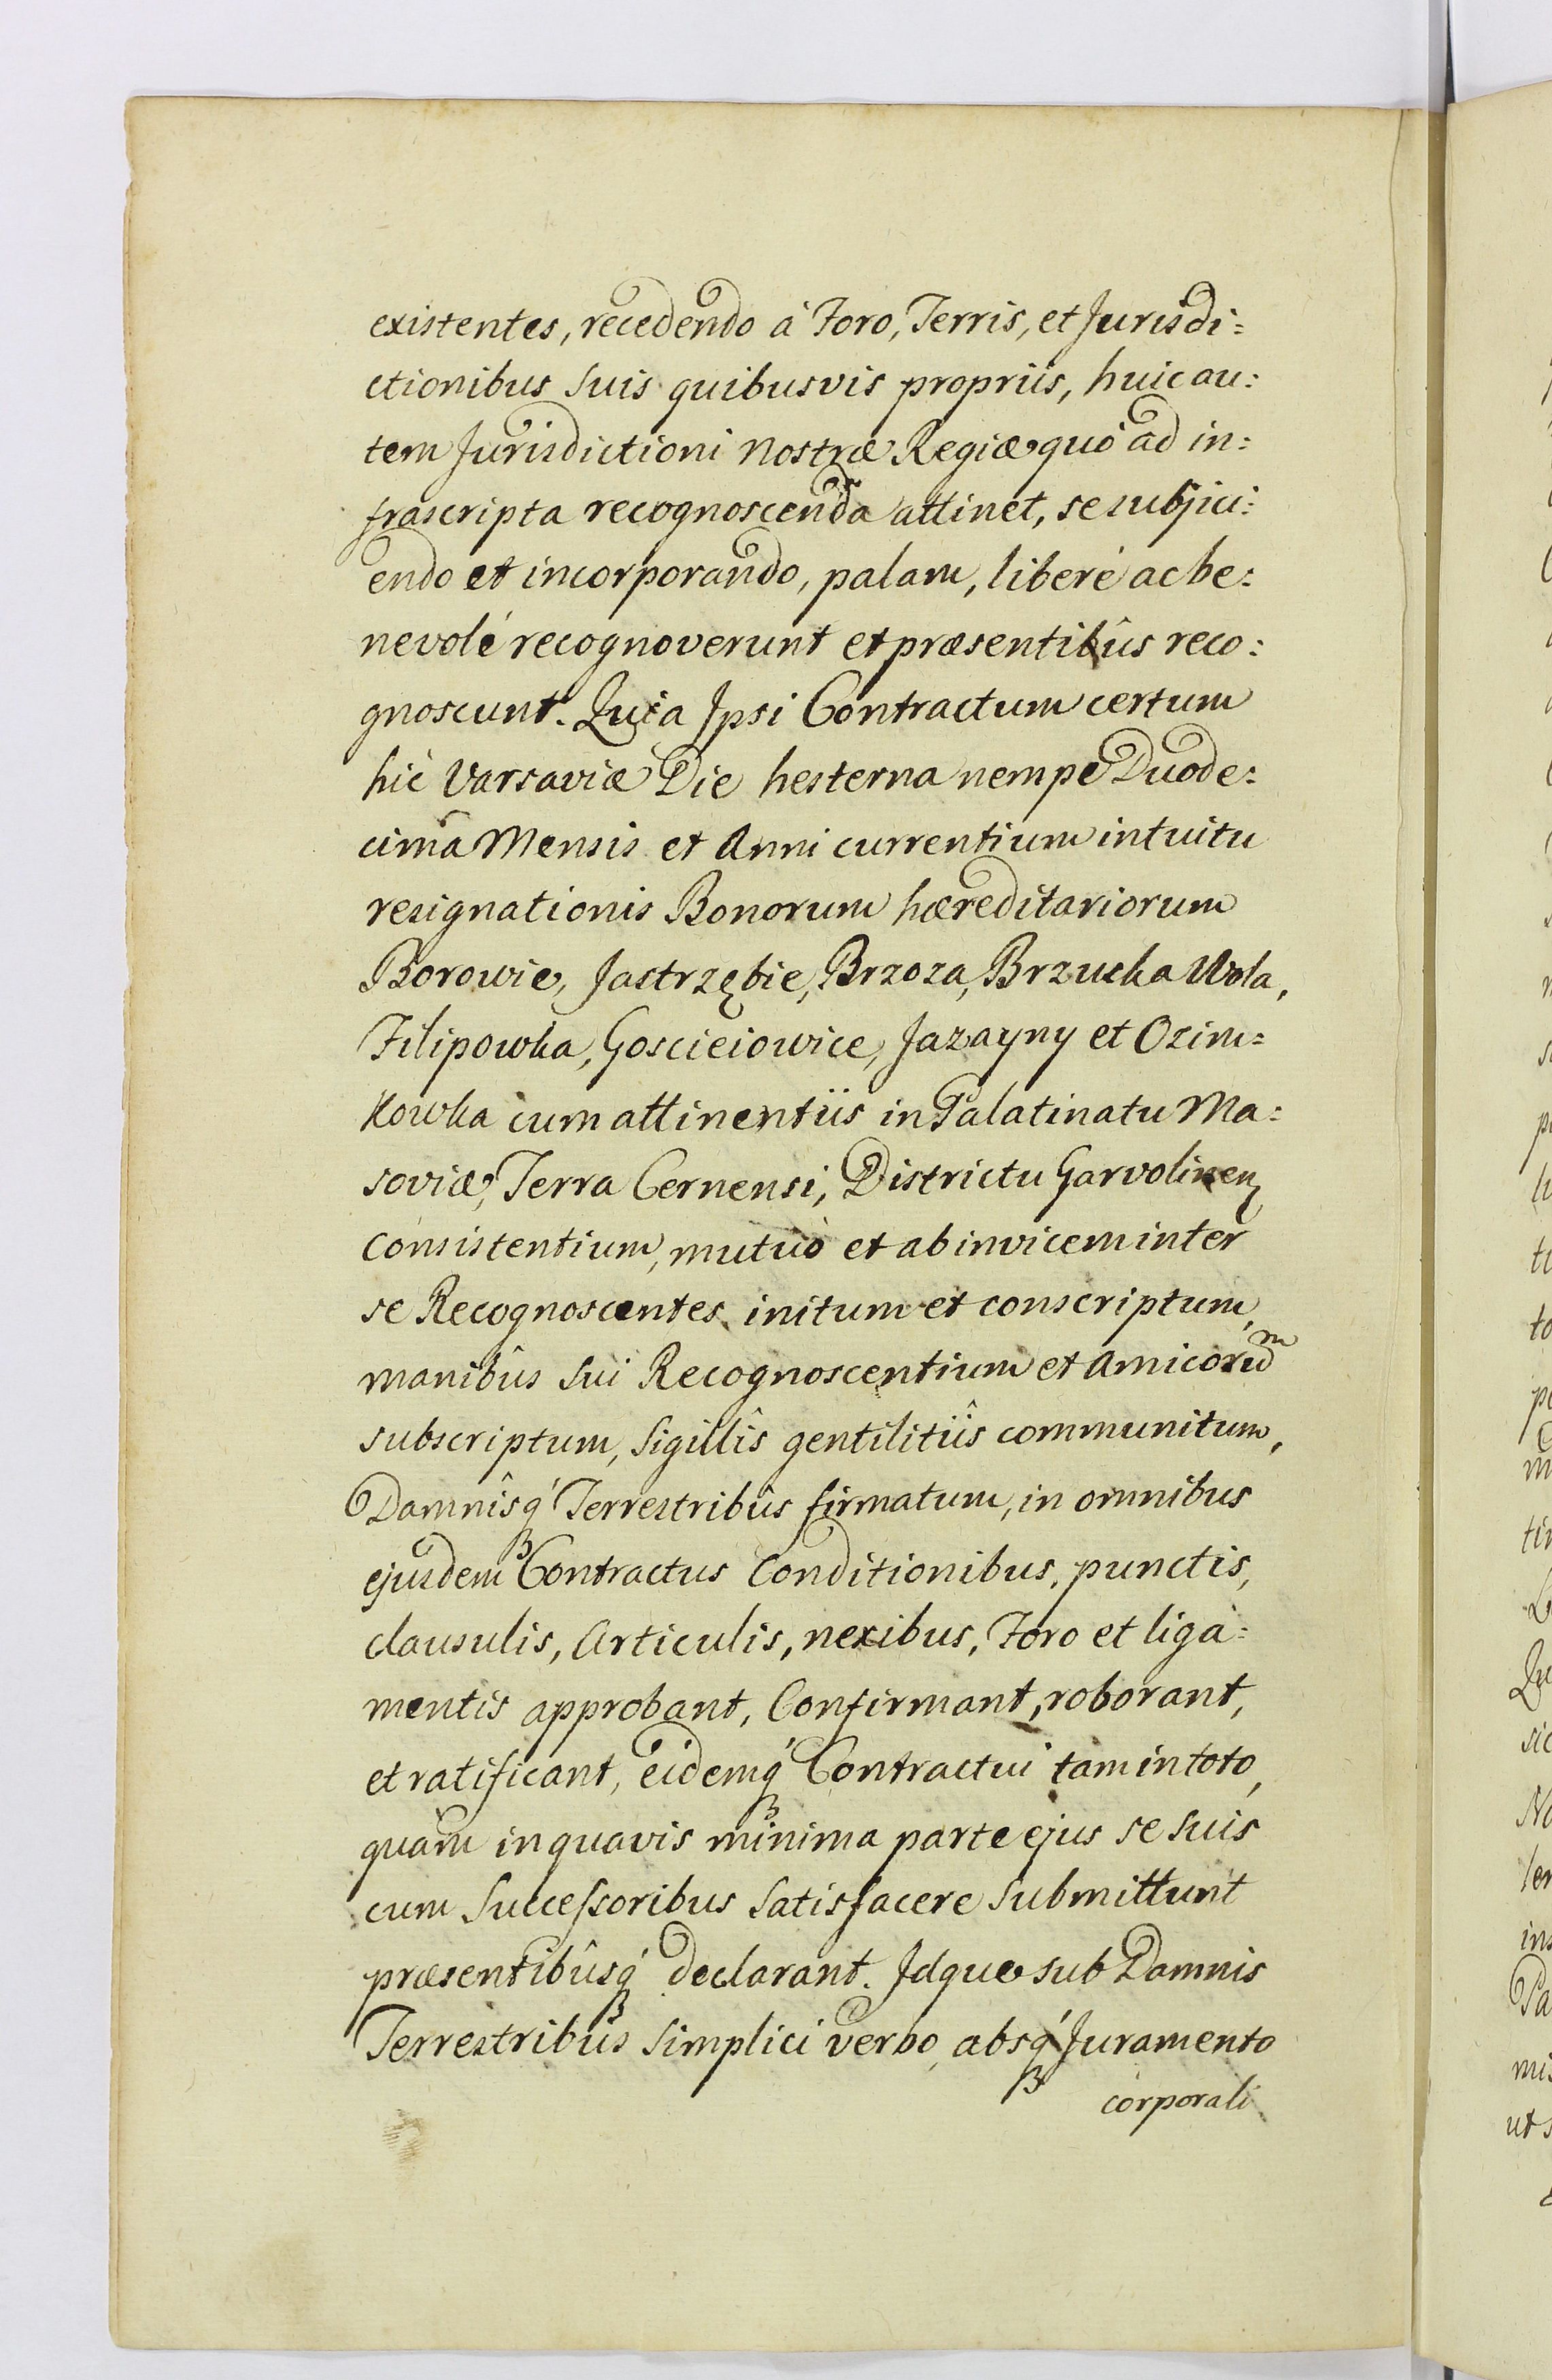 existentes, recedendo à Foro, Terris, et Jurisdi:
ctionibus suis quibusvis propriis, huic au:
tem Jurisdictioni Nostræ Regiæ quò ad in:
frascripta recognoscenda attinet, se subjici:
endo et incorporando, palam, liberè ac be:
nevolè recognoverunt et præsentibûs reco:
gnoscunt. Quia Ipsi Contractum certum
hic Varsaviæ Die hesterna nempe Duode:
cima Mensis et Anni currentium intuitu
resignationis Bonorum hæreditariorum
Borowie, Jastrzębie, Brzoza, Brzuska Wola,
Filipowka, Goscieiowice, Jazayny et Ozim=
kowka cum attinentiis in Palatinatu Ma:
soviæ, Terra Cernensi, Districtu Garvolinen
Consistentium, mutuò et ab invicem inter
se Recognoscentes initum et conscriptum,
manibûs sui Recognoscentium et Amicorum
subscriptum, Sigillîs gentilitiîs communitum,
Damnîsq́ Terrestribûs firmatum, in omnibus
ejusdem Contractus Conditionibus, punctis,
clausulis, Articulis, nexibus, Foro et liga:
mentis approbant, Confirmant, roborant,
et ratificant, eidemq́ Contractui tam in toto,
quàm in quavis minima parte ejus se suis
cum Successoribus satisfacere submittunt
præsentibûsq́ declarant. Idque sub Damnis
Terrestribûs simplici verbo absq́ Juramento
corporali